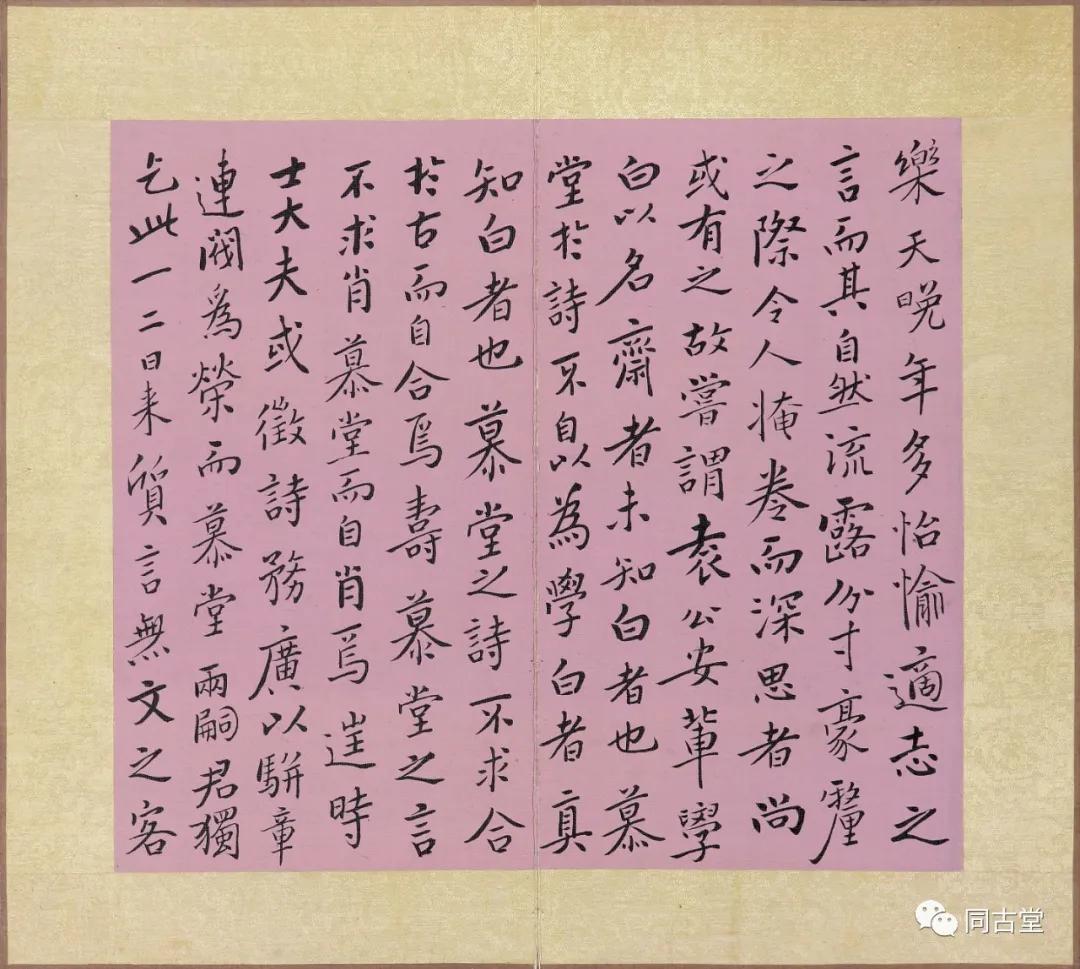 樂天晚年多怡愉適志之
言而其自然流露分寸豪釐
之際令人掩卷而深思者尚
或有之故嘗謂袁公安輩學
白以名齋者未知白者也慕
堂於詩不自以為學白者真
知白者也慕堂之詩不求合
於古而自合焉壽慕堂之言
不求肖慕堂而自肖焉時
士大夫或徵詩務廣以駢章
連閥為榮而慕堂兩嗣君獨
乞此一二日來質言無文之客
同古堂